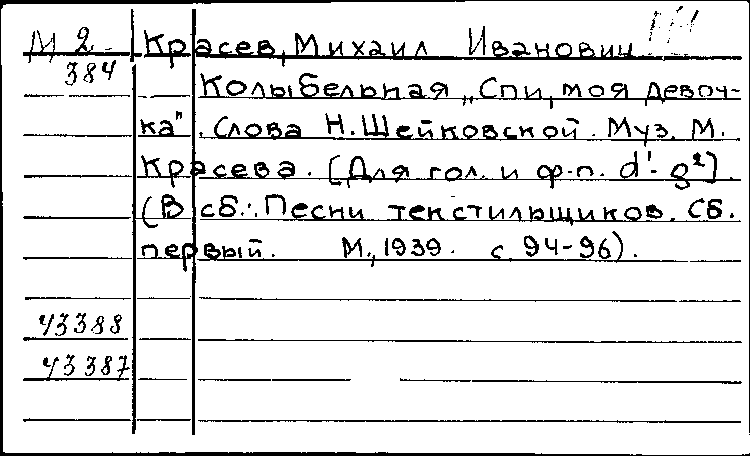 М 2 Красев, Михаил Иванович
384 Колыбельная „Спи, моя девоч-
ка". Слова Н. Шейковской. Муз. М.
Красева. [Для гол. и ф-п. d¹- g²].
(В сб.: Песни текстильщиков. Сб.
первый. М., 1939. с. 94-96).
43388
43387